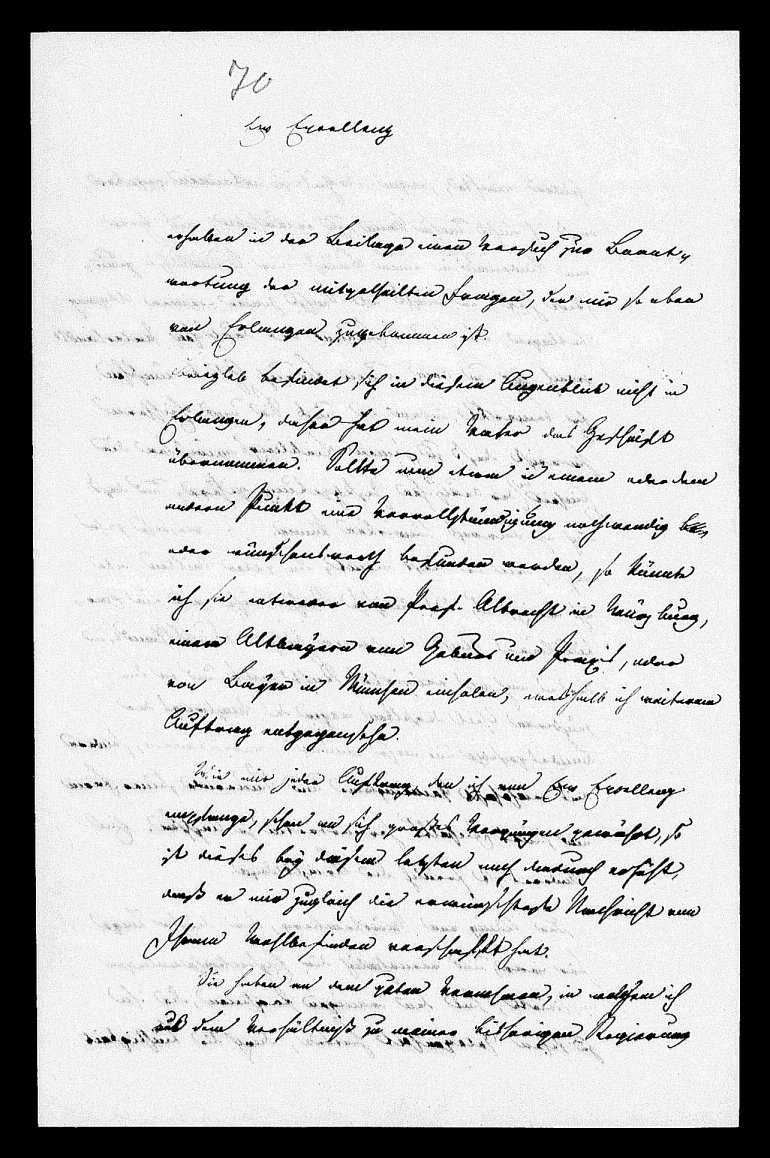 70
Ew Excellenz
erhalten in der Beilage einen Versuch zur Beant„
wortung der mitgetheilten Fragen, der mir so eben
von Erlangen zugekommen ist.
befindet sich in diesem Augenblick nicht in
Erlangen, daher hat mein Vater das Geschäft
übernommen. Sollte nun etwa in einem oder dem
andern Punkt eine Vervollständigung nothwendig
oder wünschenswerth befunden werden, so könnte
ich sie entweder von Prof. Albrecht in Würzburg,
einem Altbayern von Geburt und Praxis, oder
von Bayer in München einholen, weshalb ich weiterem
Auftrag entgegensehe.
Wie mir jeder Auftrag den ich von Ew Excellenz
empfange, schon an sich großes Vergnügen gewährt, so
ist dieses bey diesem letzten noch dadurch erhöht,
daß er mir zugleich die erwünschteste Nachricht von
Ihrem Wohlbefinden verschafft hat.
Sie haben an dem guten Vernehmen, in welchem ich
aus dem Verhältniß zu meiner bisherigen Regierung